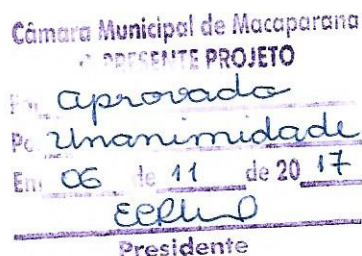 Câmara Municipal de Macaparana
O PRESENTE PROJETO
aprovado
Por Unanimidade
Em 06 de 11 de 2017
Presidente